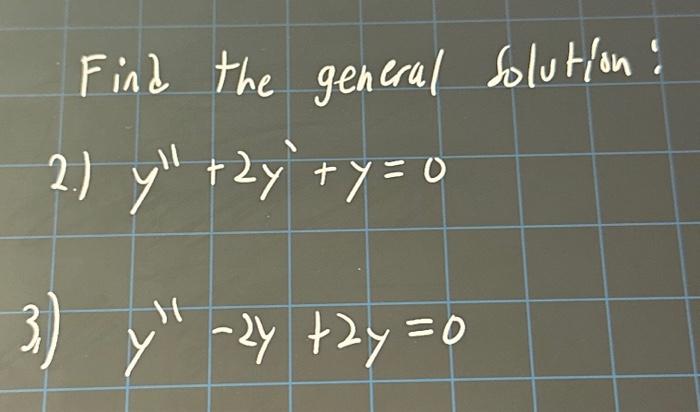 Find the general solution:
2.) y'' + 2y' + y = 0
3.) y'' - 2y + 2y = 0